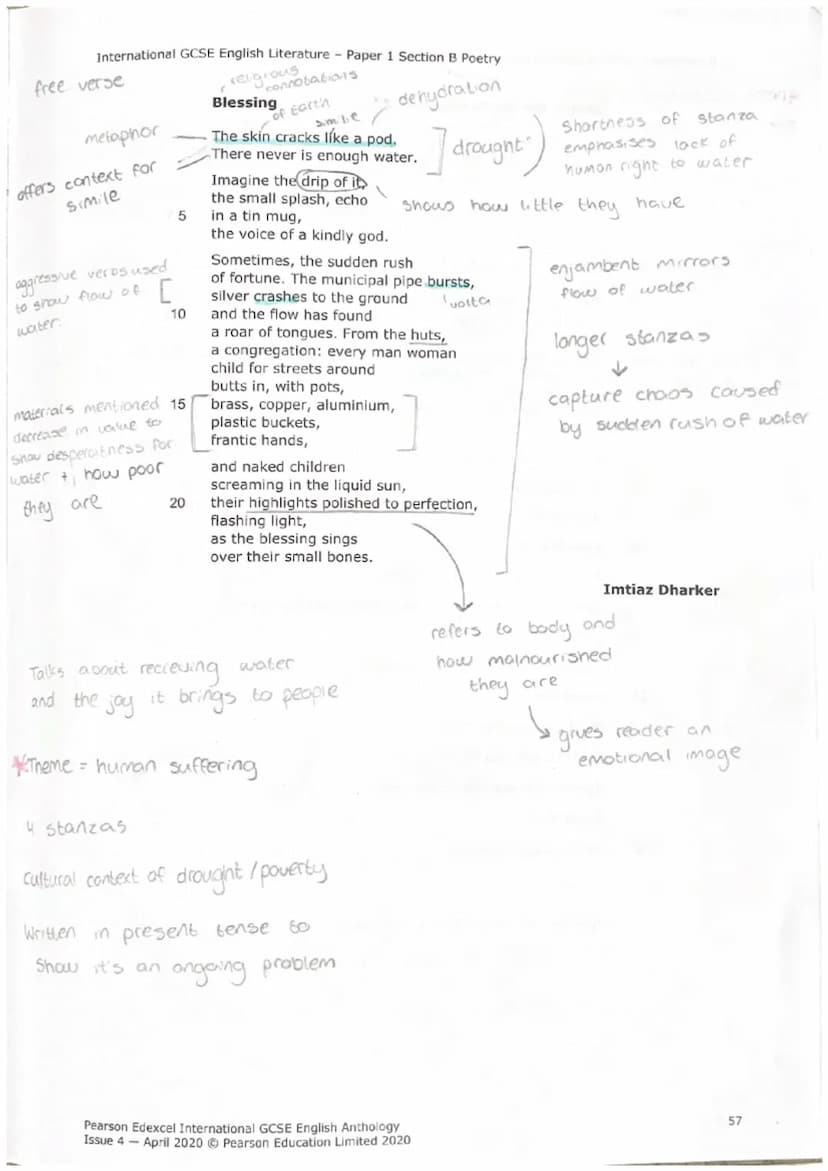 International GCSE English Literature – Paper 1 Section B Poetry
free verse
religious
connotations
Blessing
of Earth
simile
dehydration
metaphor
The skin cracks like a pod.
There never is enough water.
drought
shortness of stanza
emphasises lack of
human right to water
offers context for
simile
Imagine the drip of it,
the small splash, echo
5 in a tin mug,
the voice of a kindly god.
shows how little they have
Sometimes, the sudden rush
of fortune. The municipal pipe bursts,
silver crashes to the ground
10 and the flow has found
a roar of tongues. From the huts,
a congregation: every man woman
child for streets around
butts in, with pots,
15 brass, copper, aluminium,
plastic buckets,
frantic hands,
aggressive verbs used
to show flow of
water.
volta
enjambent mirrors
flow of water
longer stanzas
capture chaos caused
by sudden rush of water
materials mentioned
decrease in value to
show desperaitness for
water + how poor
they are
and naked children
screaming in the liquid sun,
20 their highlights polished to perfection,
flashing light,
as the blessing sings
over their small bones.
Imtiaz Dharker
refers to body and
how malnourished
they are
gives reader an
emotional image
Talks about recieving water
and the joy it brings to people
*Theme = human suffering
4 stanzas
Cultural context of drought / poverty
Written in present tense to
Show it's an ongoing problem
Pearson Edexcel International GCSE English Anthology
Issue 4 — April 2020 © Pearson Education Limited 2020
57